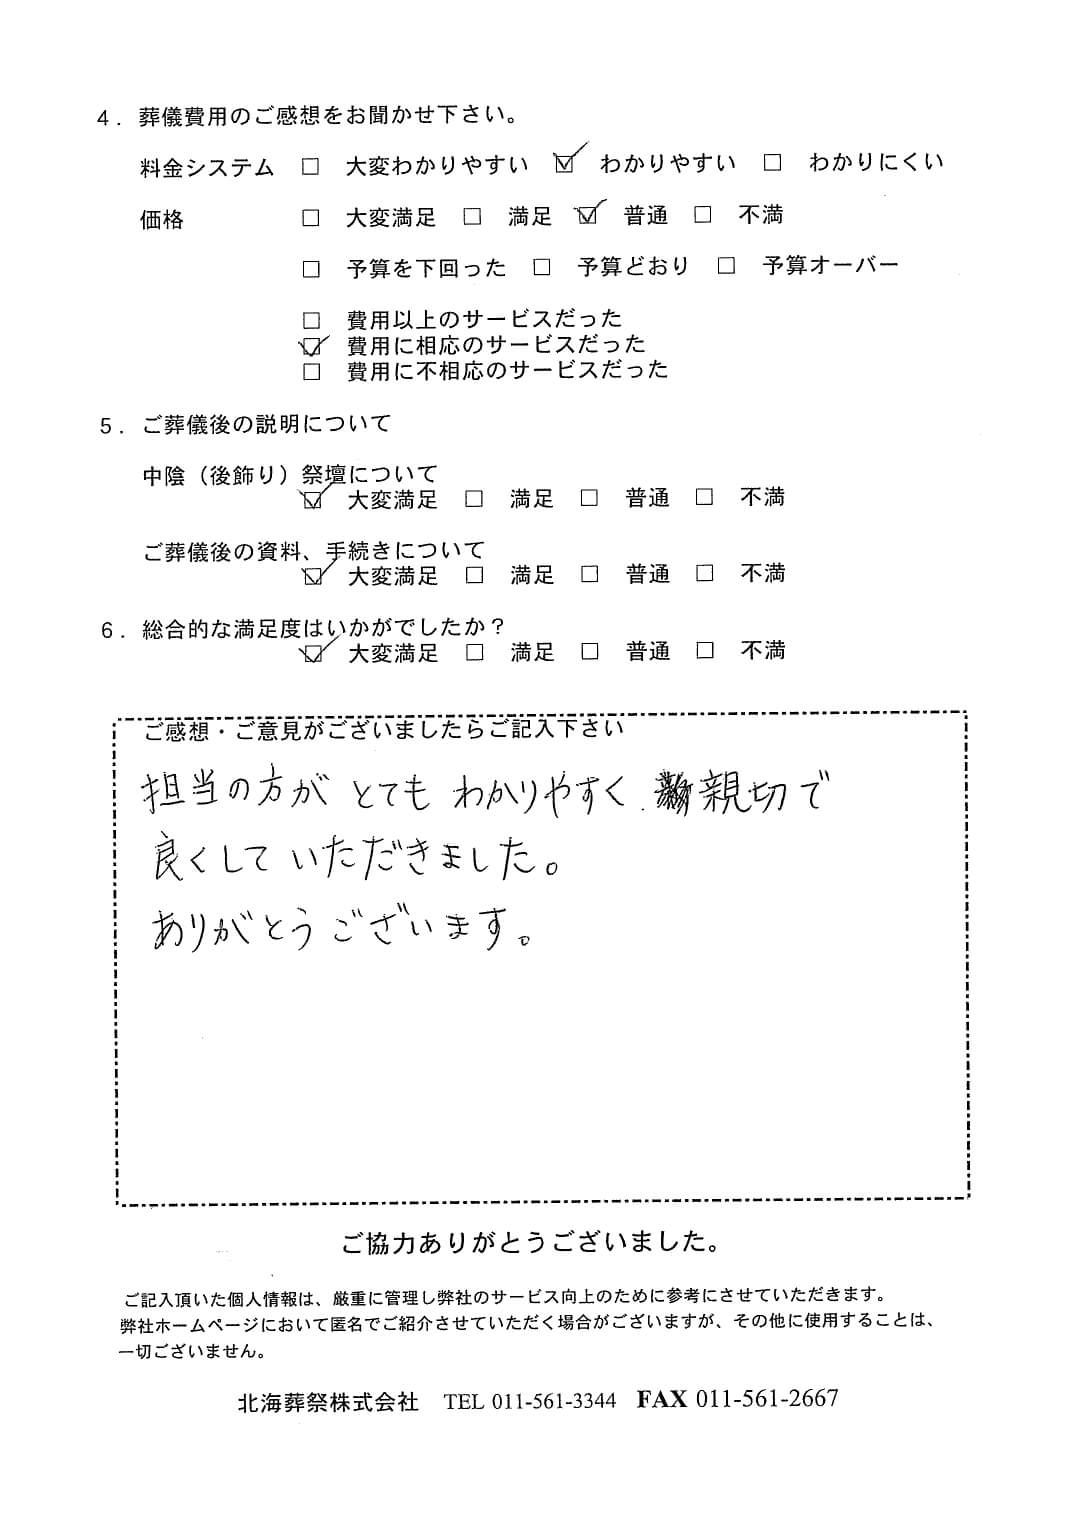 4．葬儀費用のご感想をお聞かせ下さい。
料金システム □ 大変わかりやすい ☑ わかりやすい □ わかりにくい
価格 □ 大変満足 □ 満足 ☑ 普通 □ 不満
□ 予算を下回った □ 予算どおり □ 予算オーバー
□ 費用以上のサービスだった
☑ 費用に相応のサービスだった
□ 費用に不相応のサービスだった
5．ご葬儀後の説明について
中陰（後飾り）祭壇について
☑ 大変満足 □ 満足 □ 普通 □ 不満
ご葬儀後の資料、手続きについて
☑ 大変満足 □ 満足 □ 普通 □ 不満
6．総合的な満足度はいかがでしたか？
☑ 大変満足 □ 満足 □ 普通 □ 不満
ご感想・ご意見がございましたらご記入下さい
担当の方が とても わかりやすく、親切で
良くして いただきました。
ありがとう ございます。
ご協力ありがとうございました。
ご記入頂いた個人情報は、厳重に管理し弊社のサービス向上のために参考にさせていただきます。
弊社ホームページにおいて匿名でご紹介させていただく場合がございますが、その他に使用することは、
一切ございません。
北海葬祭株式会社 TEL 011-561-3344 FAX 011-561-2667